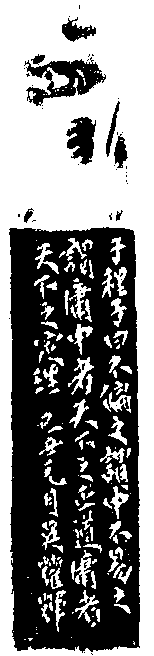 子程子曰不偏之謂中不易之
謂庸中者天下之正道庸者
天下之定理 己丑元月吴耀輝